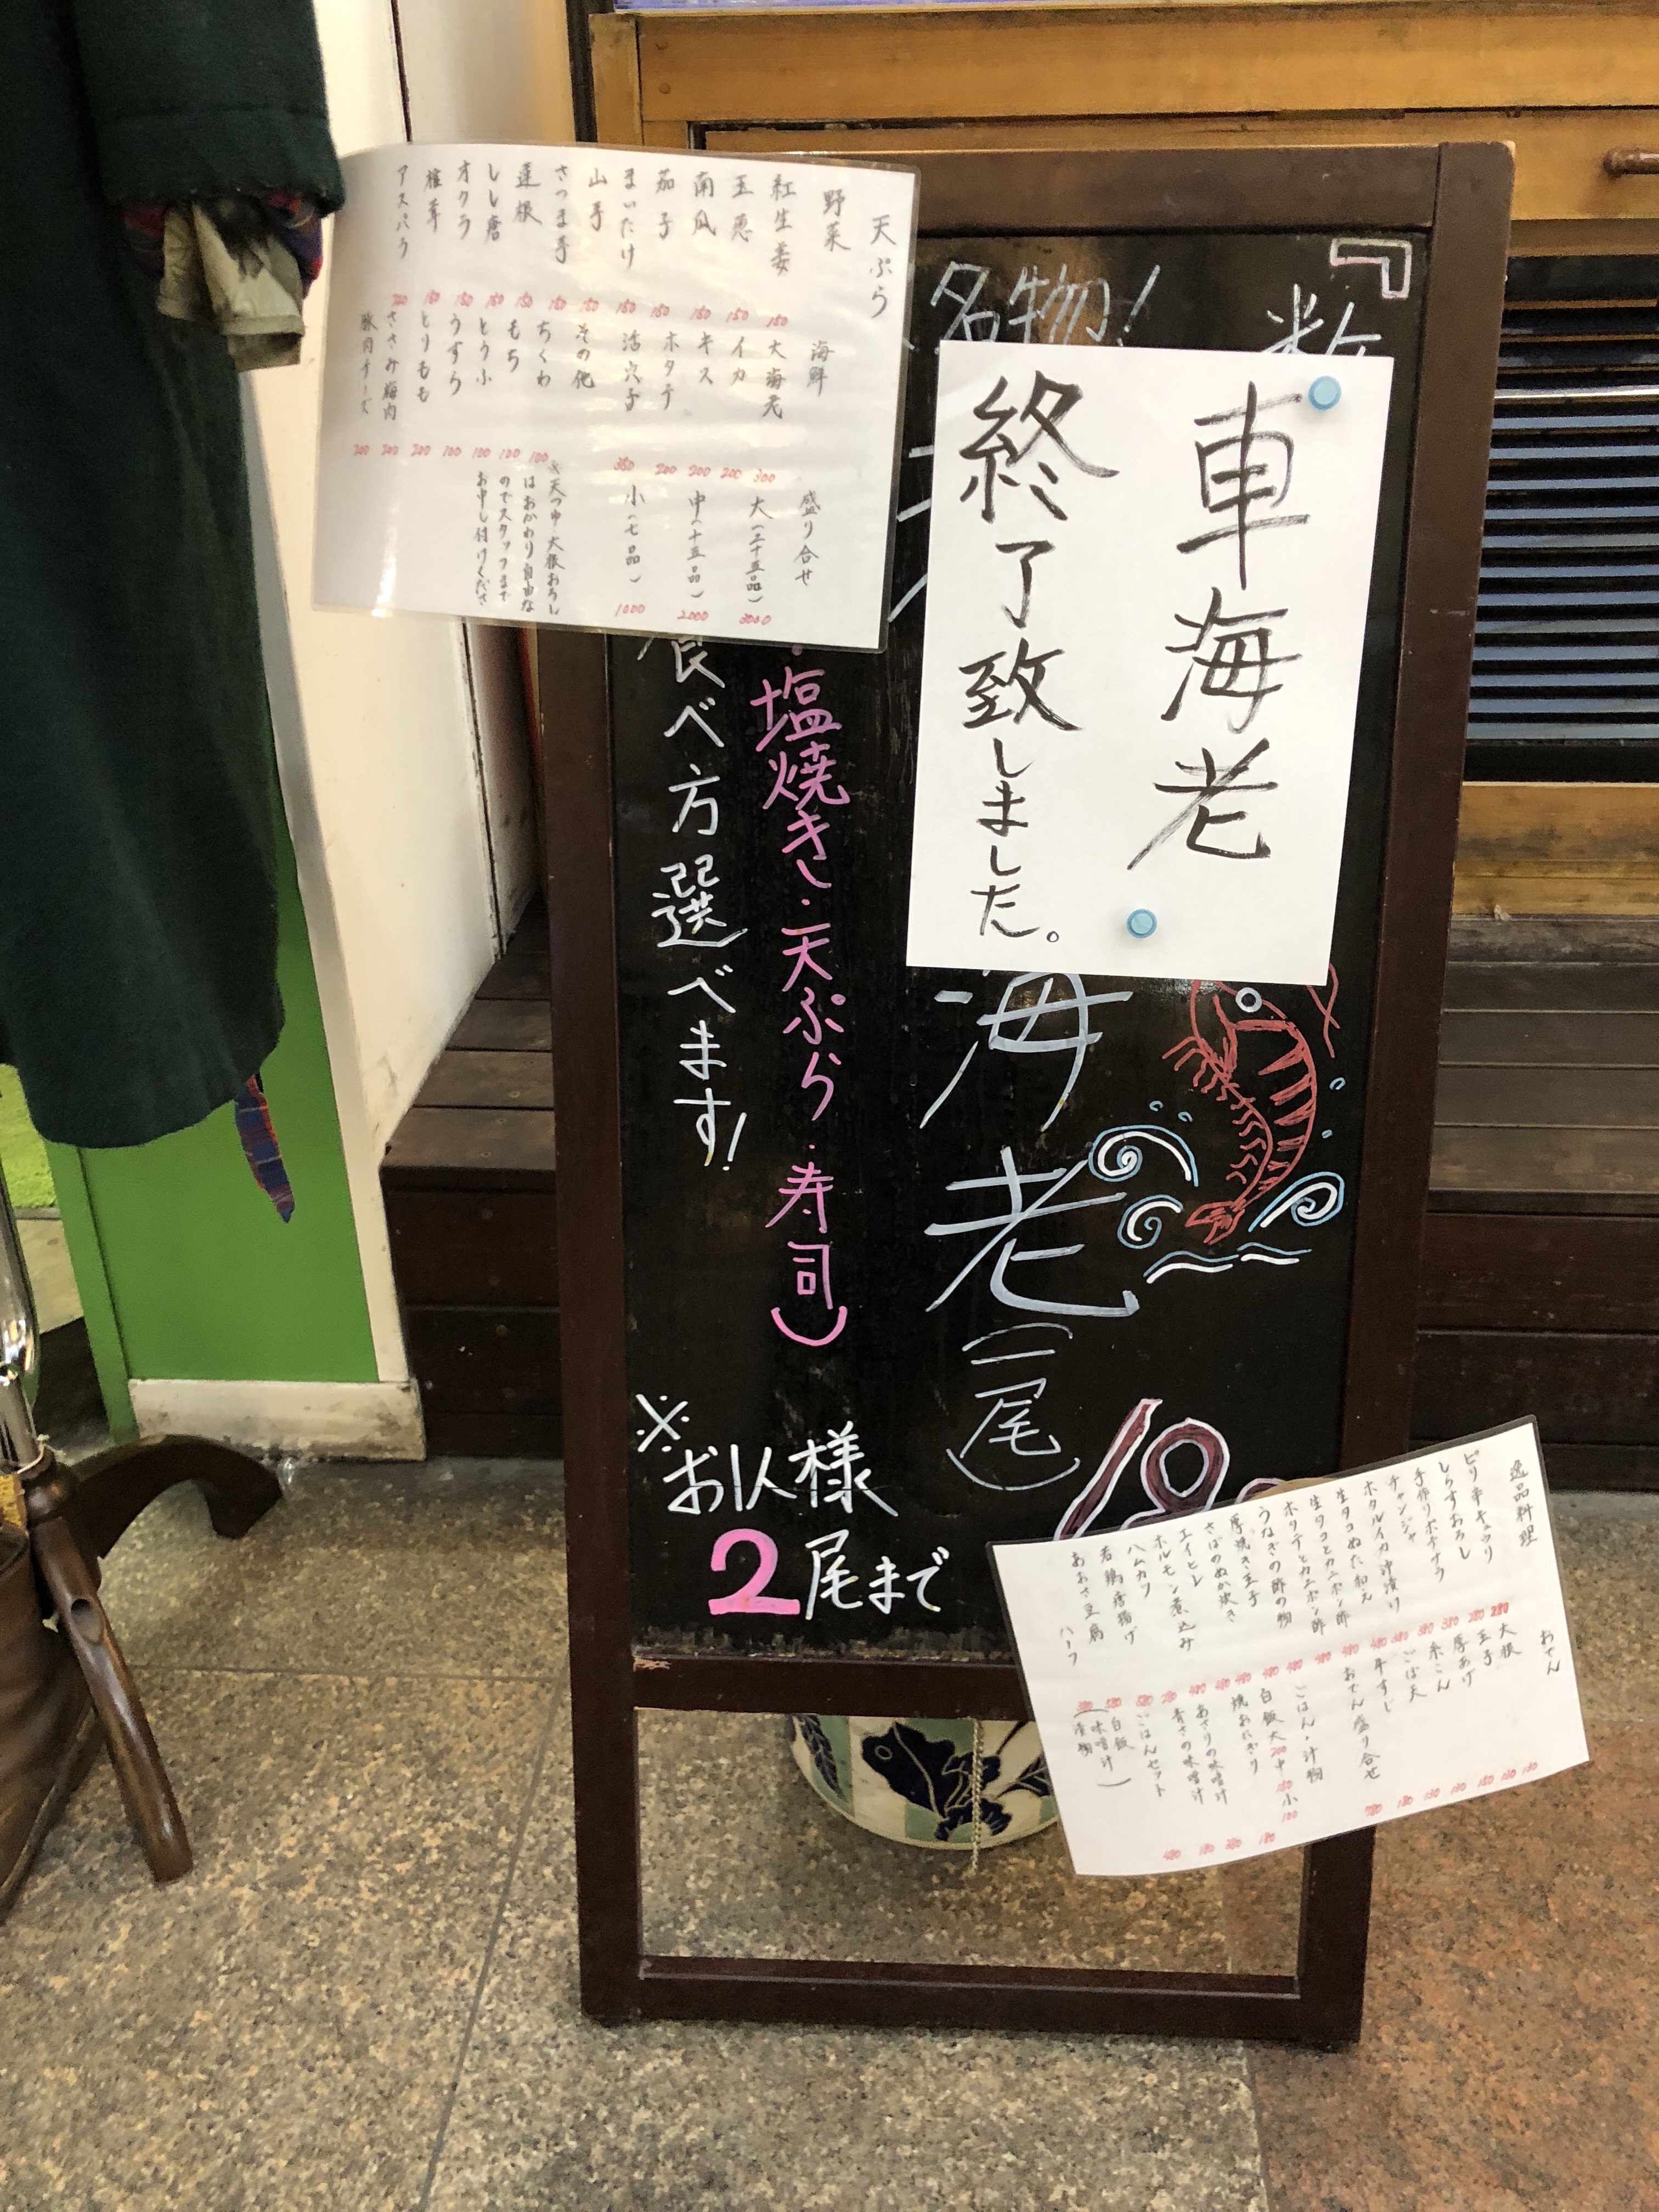 天ぷら
野菜
紅生姜 150
玉葱 150
南瓜 150
茄子 150
まいたけ 150
山芋 150
さつま芋 150
蓮根 150
しし唐 150
オクラ 150
椎茸 150
アスパラ 200
海鮮
大海老 300
イカ 200
キス 200
ホタテ 200
活穴子 350
その他
ちくわ 100
もち 100
とうふ 100
うずら 100
とりもも 200
ささみ梅肉 200
豚肉チーズ 200
盛り合せ
大(二十五品) 3000
中(十五品) 2000
小(七品) 1000
※天つゆ・大根おろし
はおかわり自由な
のでスタッフまで
お申し付けくださ
車海老
終了致しました。
『
数
名物!
海老(一尾)
塩焼き・天ぷら・寿司)
食べ方選べます!
※お1人様
2尾まで
逸品料理
ピリ辛キュウリ 280
しらすおろし 280
手作りポテサラ 380
チャンジャ 380
ホタルイカ沖漬け 380
生タコぬた和え 480
生タコとカニポン酢 480
ホタテとカニポン酢 480
うなぎの酢の物 480
厚焼き玉子
さばのぬか炊き
エイヒレ
ホルモン煮込み
ハムカツ
若鶏唐揚げ
あおさ豆腐
ハーフ
おでん
大根 130
玉子 130
厚あげ 130
糸こん 130
ごぼ天 130
牛すじ 180
おでん盛り合せ 780
ごはん・汁物
白飯 大200 中150 小100
焼おにぎり 180
あさりの味噌汁
青さの味噌汁 180
ごはんセット 480
(白飯
味噌汁
漬物)